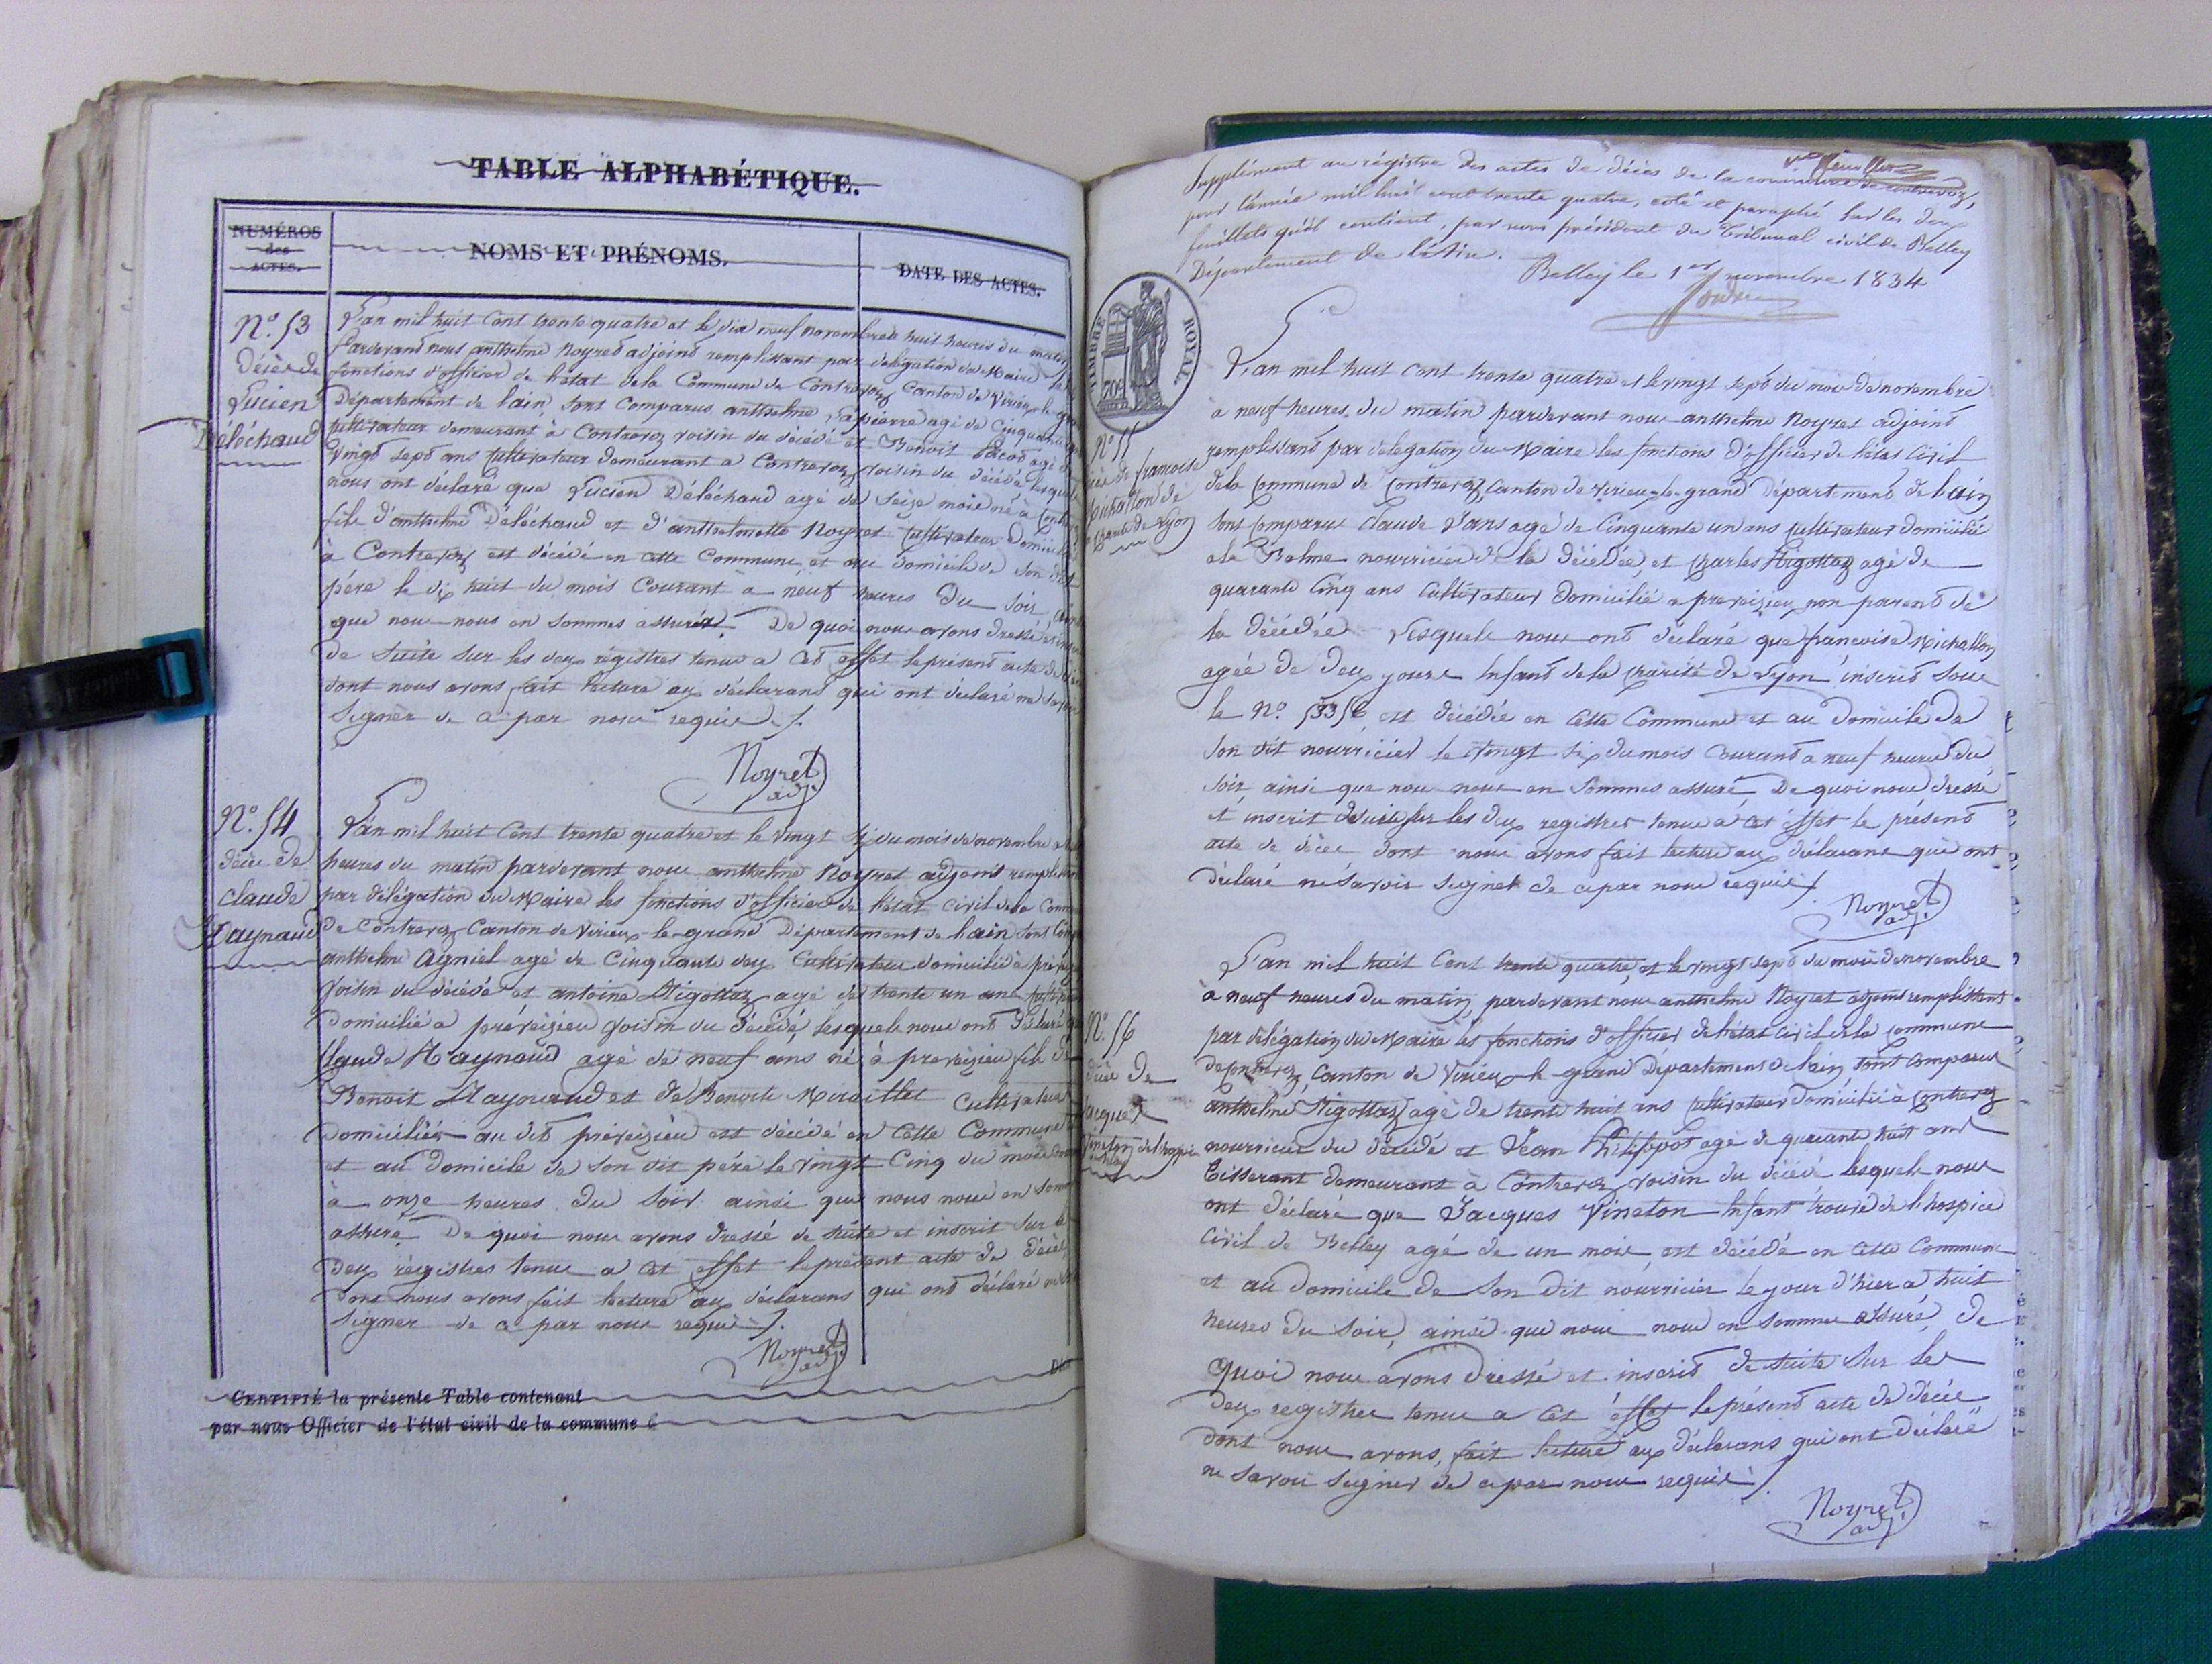 TABLE ALPHABÉTIQUE.
NUMÉROS
des
ACTES.
NOMS ET PRÉNOMS.
DATE DES ACTES.
N.º 53
Décès de
Lucien
Déléchaud
L'an mil huit cent trente quatre et le dix neuf novembre à huit heures du matin
Pardevant nous anthelme Noyret adjoint remplissant par délégation du Maire les
fonctions d'officier de l'état de la Commune de Contrevoz Canton de Virieu le grand
Département de lain sont Comparus anthelme Lapierre agé de Cinquante
cultivateur demeurant à Contrevoz voisin du décédé et Benoit agé de
vingt sept ans Cultivateur demeurant a Contrevoz voisin du décédé lesquels
nous ont déclaré que Lucien Déléchaud agé de seize mois né à
fils d'anthelme Déléchaud et d'anthelmette Noyret Cultivateurs
à Contrevoz est décédé en cette Commune et au domicile de son dit
père le dix huit du mois Courant à neuf heures du soir
que nous nous en sommes assuré. De quoi nous avons dressé
de suite sur les deux régistres tenus a cet effet le présent acte de
dont nous avons fait lecture aux déclarans qui ont déclaré ne
signer de a par nous requis ./.
Noyret
adj.
N.º 54
décès de
Claude
Haynaud
L'an mil huit Cent trente quatre et le vingt six du mois de novembre
heures du matin pardevant nous anthelme Noyret adjoint
par délégation du Maire les fonctions d'officier de l'état civil de la
de Contrevoz Canton de Virieu le grand Département de lain sont
anthelme Agniel agé de Cinquante deux Cultivateur domicilié à
voisin du décédé et antoine Aigottaz agé de trente un ans
domicilié a préveizieu voisin du décédé, lesquels nous ont déclaré
Claude Haynaud agé de neuf ans né à preveizieu fils de
Benoit Haynaud et de Benoite Miraillet Cultivateurs
domiciliés au dit préveizieu est décédé en Cette Commune
et au domicile de son dit père le vingt Cinq du mois
à onze heures du soir ainsi que nous nous en
assuré De quoi nous avons dressé de suite et inscrit sur les
deux régistres tenus a cet effet le présent acte de décès
dont nous avons fait lecture aux déclarans qui ont déclaré
signer de a par nous requis ./.
Noyret
adj.
CERTIFIÉ la présente Table contenant
par nous Officier de l'état civil de la commune
Supplément au régistre des actes de décès de la commune de contrevoz,
pour l'année mil huit cent trente quatre, coté et paraphé sur les deux
feuillets qu'il contient, par nous président du Tribunal civil de Belley
Département de l'Ain.
Belley le 1er novembre 1834
TIMBRE ROYAL
N.º 55
françoise
Michallon de
la charité de Lyon
L'an mil huit cent trente quatre et le vingt sept du mois de novembre
à neuf heures du matin pardevant nous anthelme Noyret adjoint
remplissant par délégation du Maire les fonctions d'officier de l'état Civil
de la Commune de Contrevoz Canton de Virieu le grand Département de lain
sont Comparus Claude agé de Cinquante un ans Cultivateur domicilié
a la Balme nourricier de la décédée, et Charles Aigottaz agé de
quarante Cinq ans Cultivateur domicilié a preveizieu non parent de
la décédée Lesquels nous ont déclaré que francoise Michallon
agée de deux jours Enfant de la Charité de Lyon inscrit sous
le N.º est décédée en Cette Commune et au Domicile de
son dit nourricier le vingt six du mois Courant a neuf heures du
soir ainsi que nous nous en sommes assuré De quoi nous dressé
et inscrit de suite sur les deux registres tenus a cet effet le présent
acte de décès dont nous avons fait lecture aux déclarans qui ont
déclaré ne savoir signer de a par nous requis ./.
Noyret
adj.
N.º 56
décès de
Jacques
Vineton de l'hospice
L'an mil huit Cent trente quatre, et le vingt sept du mois de novembre
à neuf heures du matin pardevant nous anthelme Noyret adjoint remplissant
par délégation du Maire les fonctions d'officier de l'état civil de la Commune
de Contrevoz, Canton de Virieux le grand Département de lain sont Comparus
anthelme Aigottaz agé de trente huit ans Cultivateur domicilié à Contrevoz
nourricier du décédé et Jean Philippot agé de quarante huit ans
tisserant demeurant à Contrevoz voisin du décédé lesquels nous
ont déclaré que Jacques Vineton Enfant trouvé de l'hospice
Civil de Belley agé de un mois est décédé en Cette Commune
et au domicile de son dit nourricier le jour d'hier a huit
heures du soir, ainsi que nous nous en sommes assuré, de
quoi nous avons dressé et inscrit de suite sur les
deux registres tenus a cet effet le présent acte de décès
dont nous avons, fait lecture aux déclarans qui ont déclaré
ne savoir signer de a par nous requis ./.
Noyret
adj.